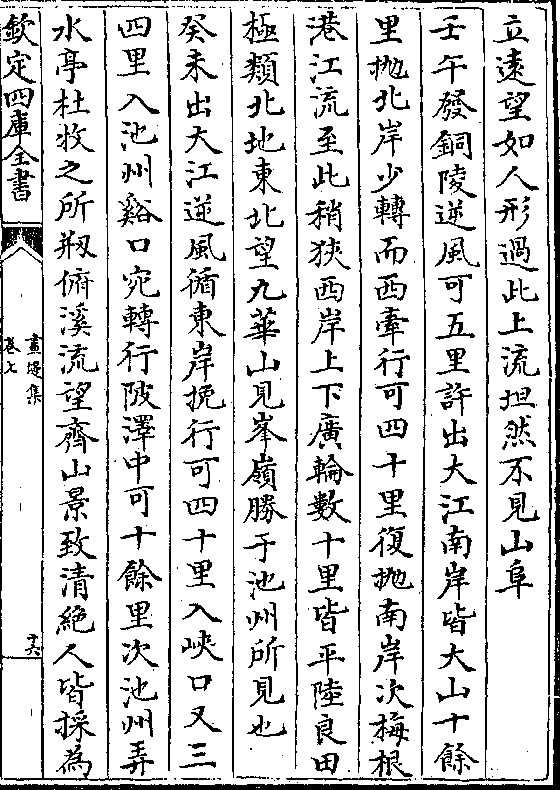 立遠望如人形過此上流坦然不見山阜
壬午發銅陵逆風可五里許出大江南岸皆大山十餘
里抛北岸少轉而西牽行可四十里復抛南岸次梅根
港江流至此稍狹西岸上下廣輪數十里皆平陸良田
極類北地東北望九華山見峯嶺勝于池州所見也
癸未出大江逆風循東岸挽行可四十里入峽口又三
四里入池州谿口宛轉行陂澤中可十餘里次池州弄
水亭杜牧之所剏俯溪流望齊山景致清絶人皆採為
欽定四庫全書
畫墁集
卷七
十六